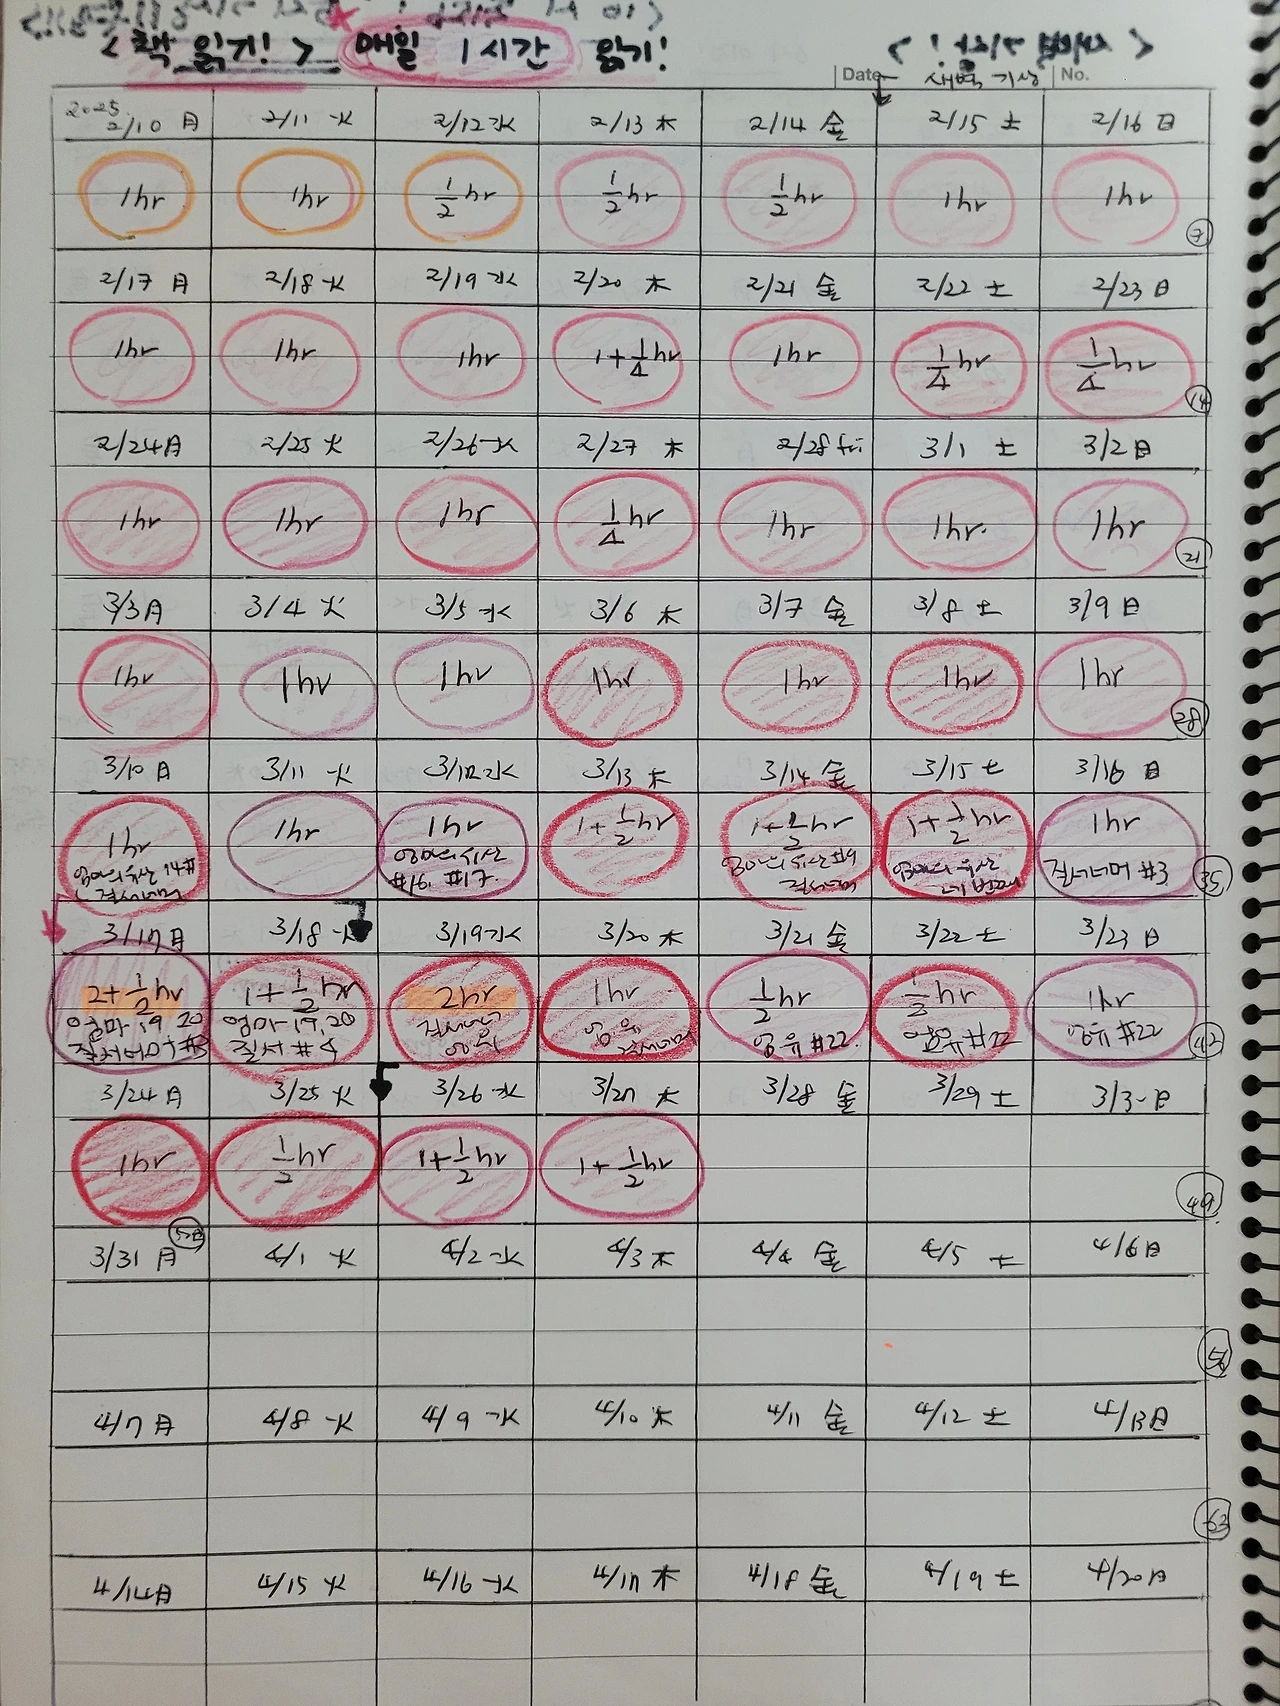 <책 읽기!> 매일 1시간 읽기!
Date 새벽 기상 No.
2025 2/10 月 2/11 火 2/12 水 2/13 木 2/14 金 2/15 土 2/16 日
1hr 1hr 1/2 hr 1/2 hr 1/2 hr 1hr 1hr 7
2/17 月 2/18 火 2/19 水 2/20 木 2/21 金 2/22 土 2/23 日
1hr 1hr 1hr 1+1/4 hr 1hr 1/4 hr 1/4 hr 14
2/24 月 2/25 火 2/26 水 2/27 木 2/28 fri 3/1 土 3/2 日
1hr 1hr 1hr 1/4 hr 1hr 1hr. 1hr 21
3/3 月 3/4 火 3/5 水 3/6 木 3/7 金 3/8 土 3/9 日
1hr 1hr 1hr 1hr 1hr 1hr 1hr 28
3/10 月 3/11 火 3/12 水 3/13 木 3/14 金 3/15 土 3/16 日
1hr 1hr 1hr 1+1/2 hr 1+1/2 hr 1+1/2 hr 1hr
엄마의 유산 14# 엄마의 유산 엄마의 유산 #9 엄마의 유산 질서너머 #3
질서너머 #16. #17. 질서너머 네 번째 35
3/17 月 3/18 火 3/19 水 3/20 木 3/21 金 3/22 土 3/23 日
2+1/2 hr 1+1/2 hr 2hr 1hr 1/2 hr 1/2 hr 1hr
엄마 19, 20 엄마 19, 20 질서너머 엄유 엄유 #22. 엄유 #22 엄유 #22
질서너머 #3 질서 #4 엄유 질서너머 42
3/24 月 3/25 火 3/26 水 3/27 木 3/28 金 3/29 土 3/30 日
1hr 1/2 hr 1+1/2 hr 1+1/2 hr 49
3/31 月 4/1 火 4/2 水 4/3 木 4/4 金 4/5 土 4/6 日
56
4/7 月 4/8 火 4/9 水 4/10 木 4/11 金 4/12 土 4/13 日
63
4/14 月 4/15 火 4/16 水 4/17 木 4/18 金 4/19 土 4/20 日